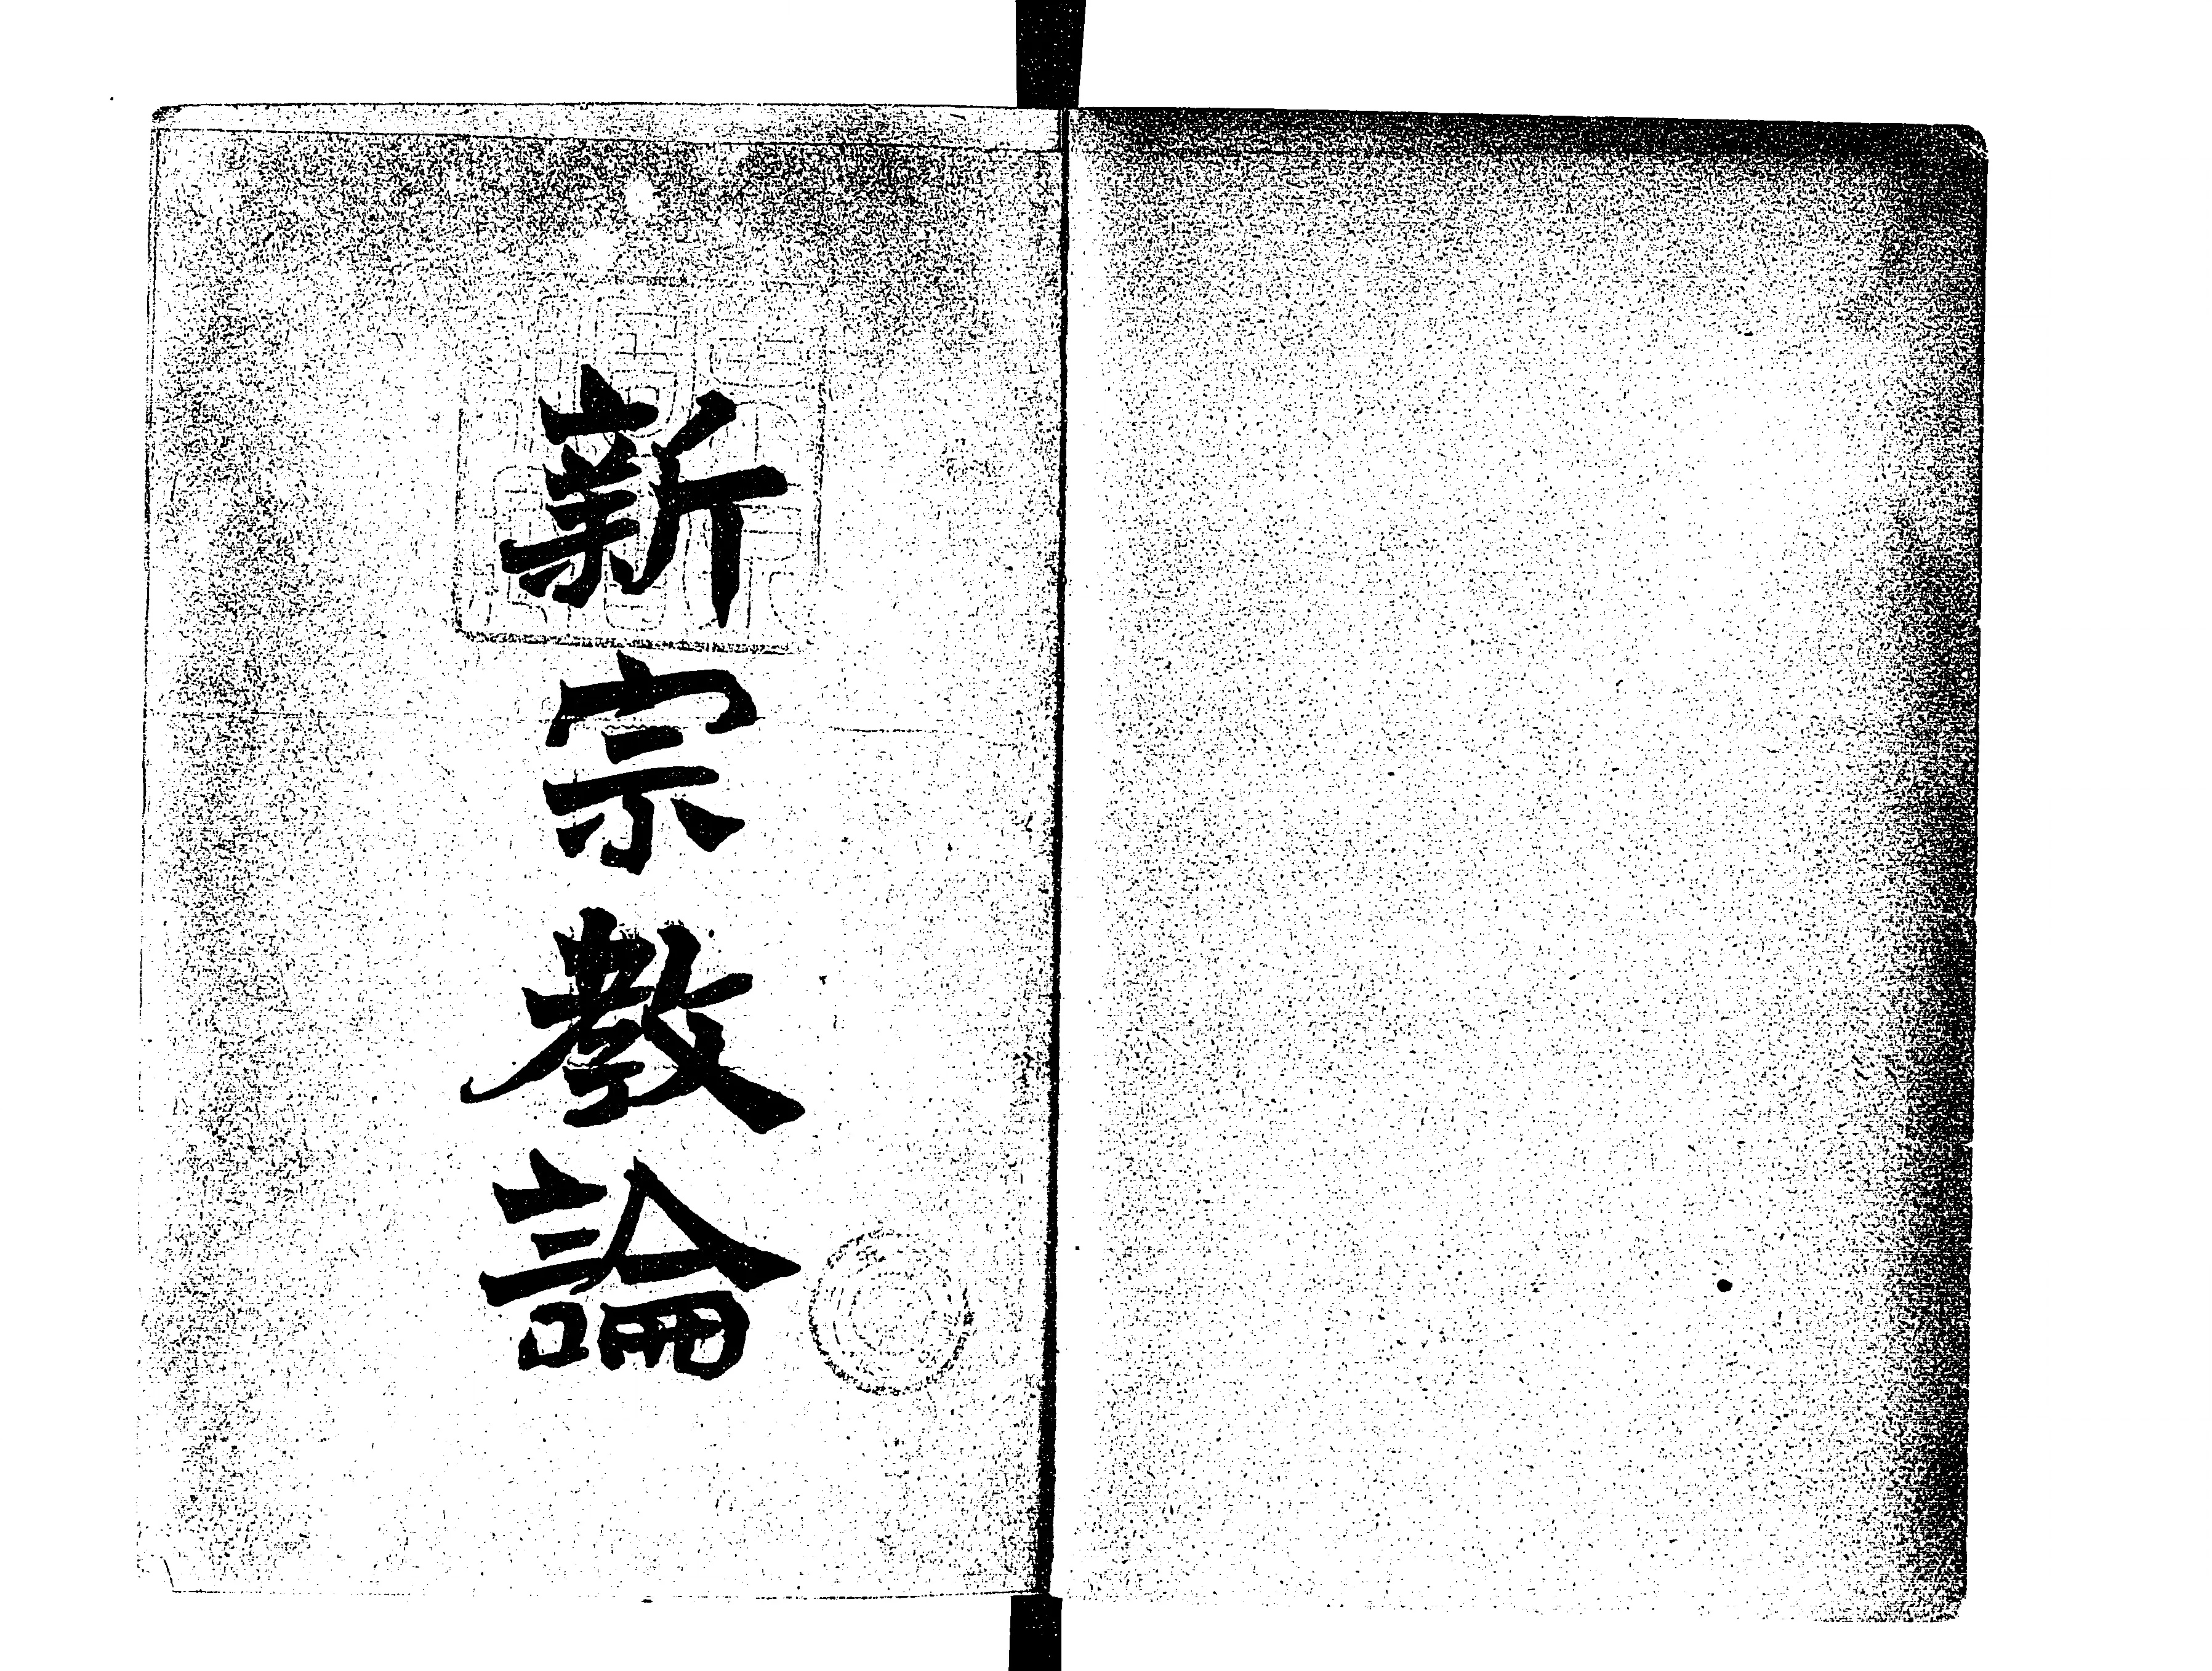 新宗教論